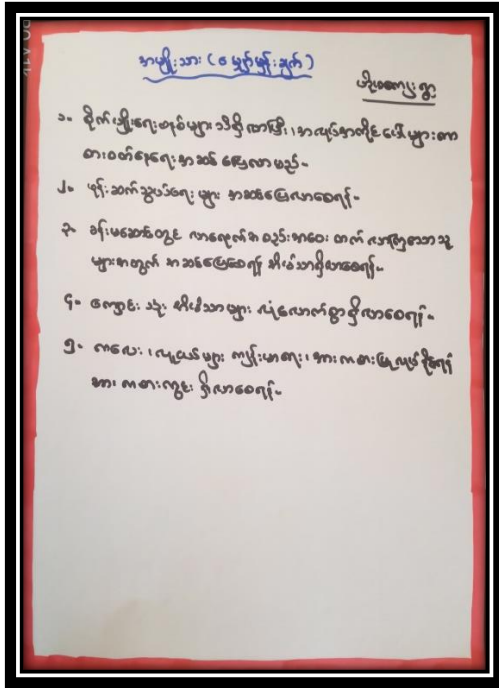 အမျိုးသား (မျှော်မှန်းချက်)
ဟိုးတကျေးရွာ
၁။ စိုက်ပျိုးရေးစနစ်များ သိရှိလာပြီး၊ အလုပ်အကိုင်ပေါများကာ
စားဝတ်နေရေး အဆင်ပြေလာမည်။
၂။ ဖုန်းဆက်သွယ်ရေး များ အဆင်ပြေလာစေရန်။
၃။ ခန်းမဆောင်တွင် လာရောက် အစည်းအဝေး တက် လာကြသော သူ
များအတွက် အဆင်ပြေစေရန် အိမ်သာရှိလာစေရန်။
၄။ ကျောင်း သုံး အိမ်သာများ လုံလောက်စွာရှိလာစေရန်။
၅။ ကလေး ၊ လူငယ်များ ကျန်းမာရေး ၊ အားကစားပြုလုပ်နိုင်ရန်
အား ကစားကွင်း ရှိလာစေရန်။